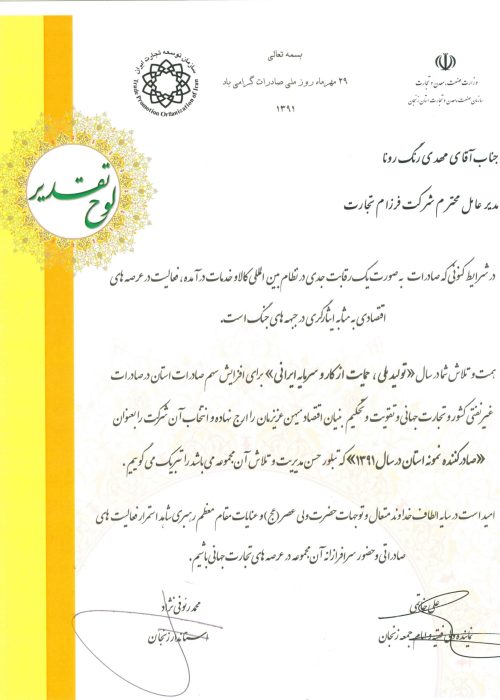 بسمه تعالی
۲۹ مهرماه روز ملی صادرات گرامی باد
۱۳۹۱
سازمان توسعه تجارت ایران
Trade Promotion Organization of Iran
وزارت صنعت، معدن و تجارت
سازمان صنعت، معدن و تجارت استان زنجان
لوح تقدیر
جناب آقای مهدی رنگ رونا
مدیر عامل محترم شرکت فرزام تجارت
در شرایط کنونی که صادرات به صورت یک رقابت جدی در نظام بین المللی کالا و خدمات درآمده، فعالیت در عرصه های
اقتصادی به مثابه ایثارگری در جبهه های جنگ است.
همت و تلاش شما در سال «تولید ملی، حمایت از کار و سرمایه ایرانی» برای افزایش سهم صادرات استان در صادرات
غیرنفتی کشور و تجارت جهانی و تقویت و تحکیم بنیان اقتصاد میهن عزیزمان را ارج نهاده و انتخاب آن شرکت را بعنوان
«صادرکننده نمونه استان در سال ۱۳۹۱» که تبلور حسن مدیریت و تلاش آن مجموعه می باشد را تبریک می گوییم.
امید است در سایه الطاف خداوند متعال و توجهات حضرت ولی عصر (عج) و عنایات مقام معظم رهبری شاهد استمرار فعالیت های
صادراتی و حضور سرافرازانه آن مجموعه در عرصه های تجارت جهانی باشیم.
علی خاتمی
نماینده ولی فقیه و امام جمعه زنجان
محمد رئوفی نژاد
استاندار زنجان